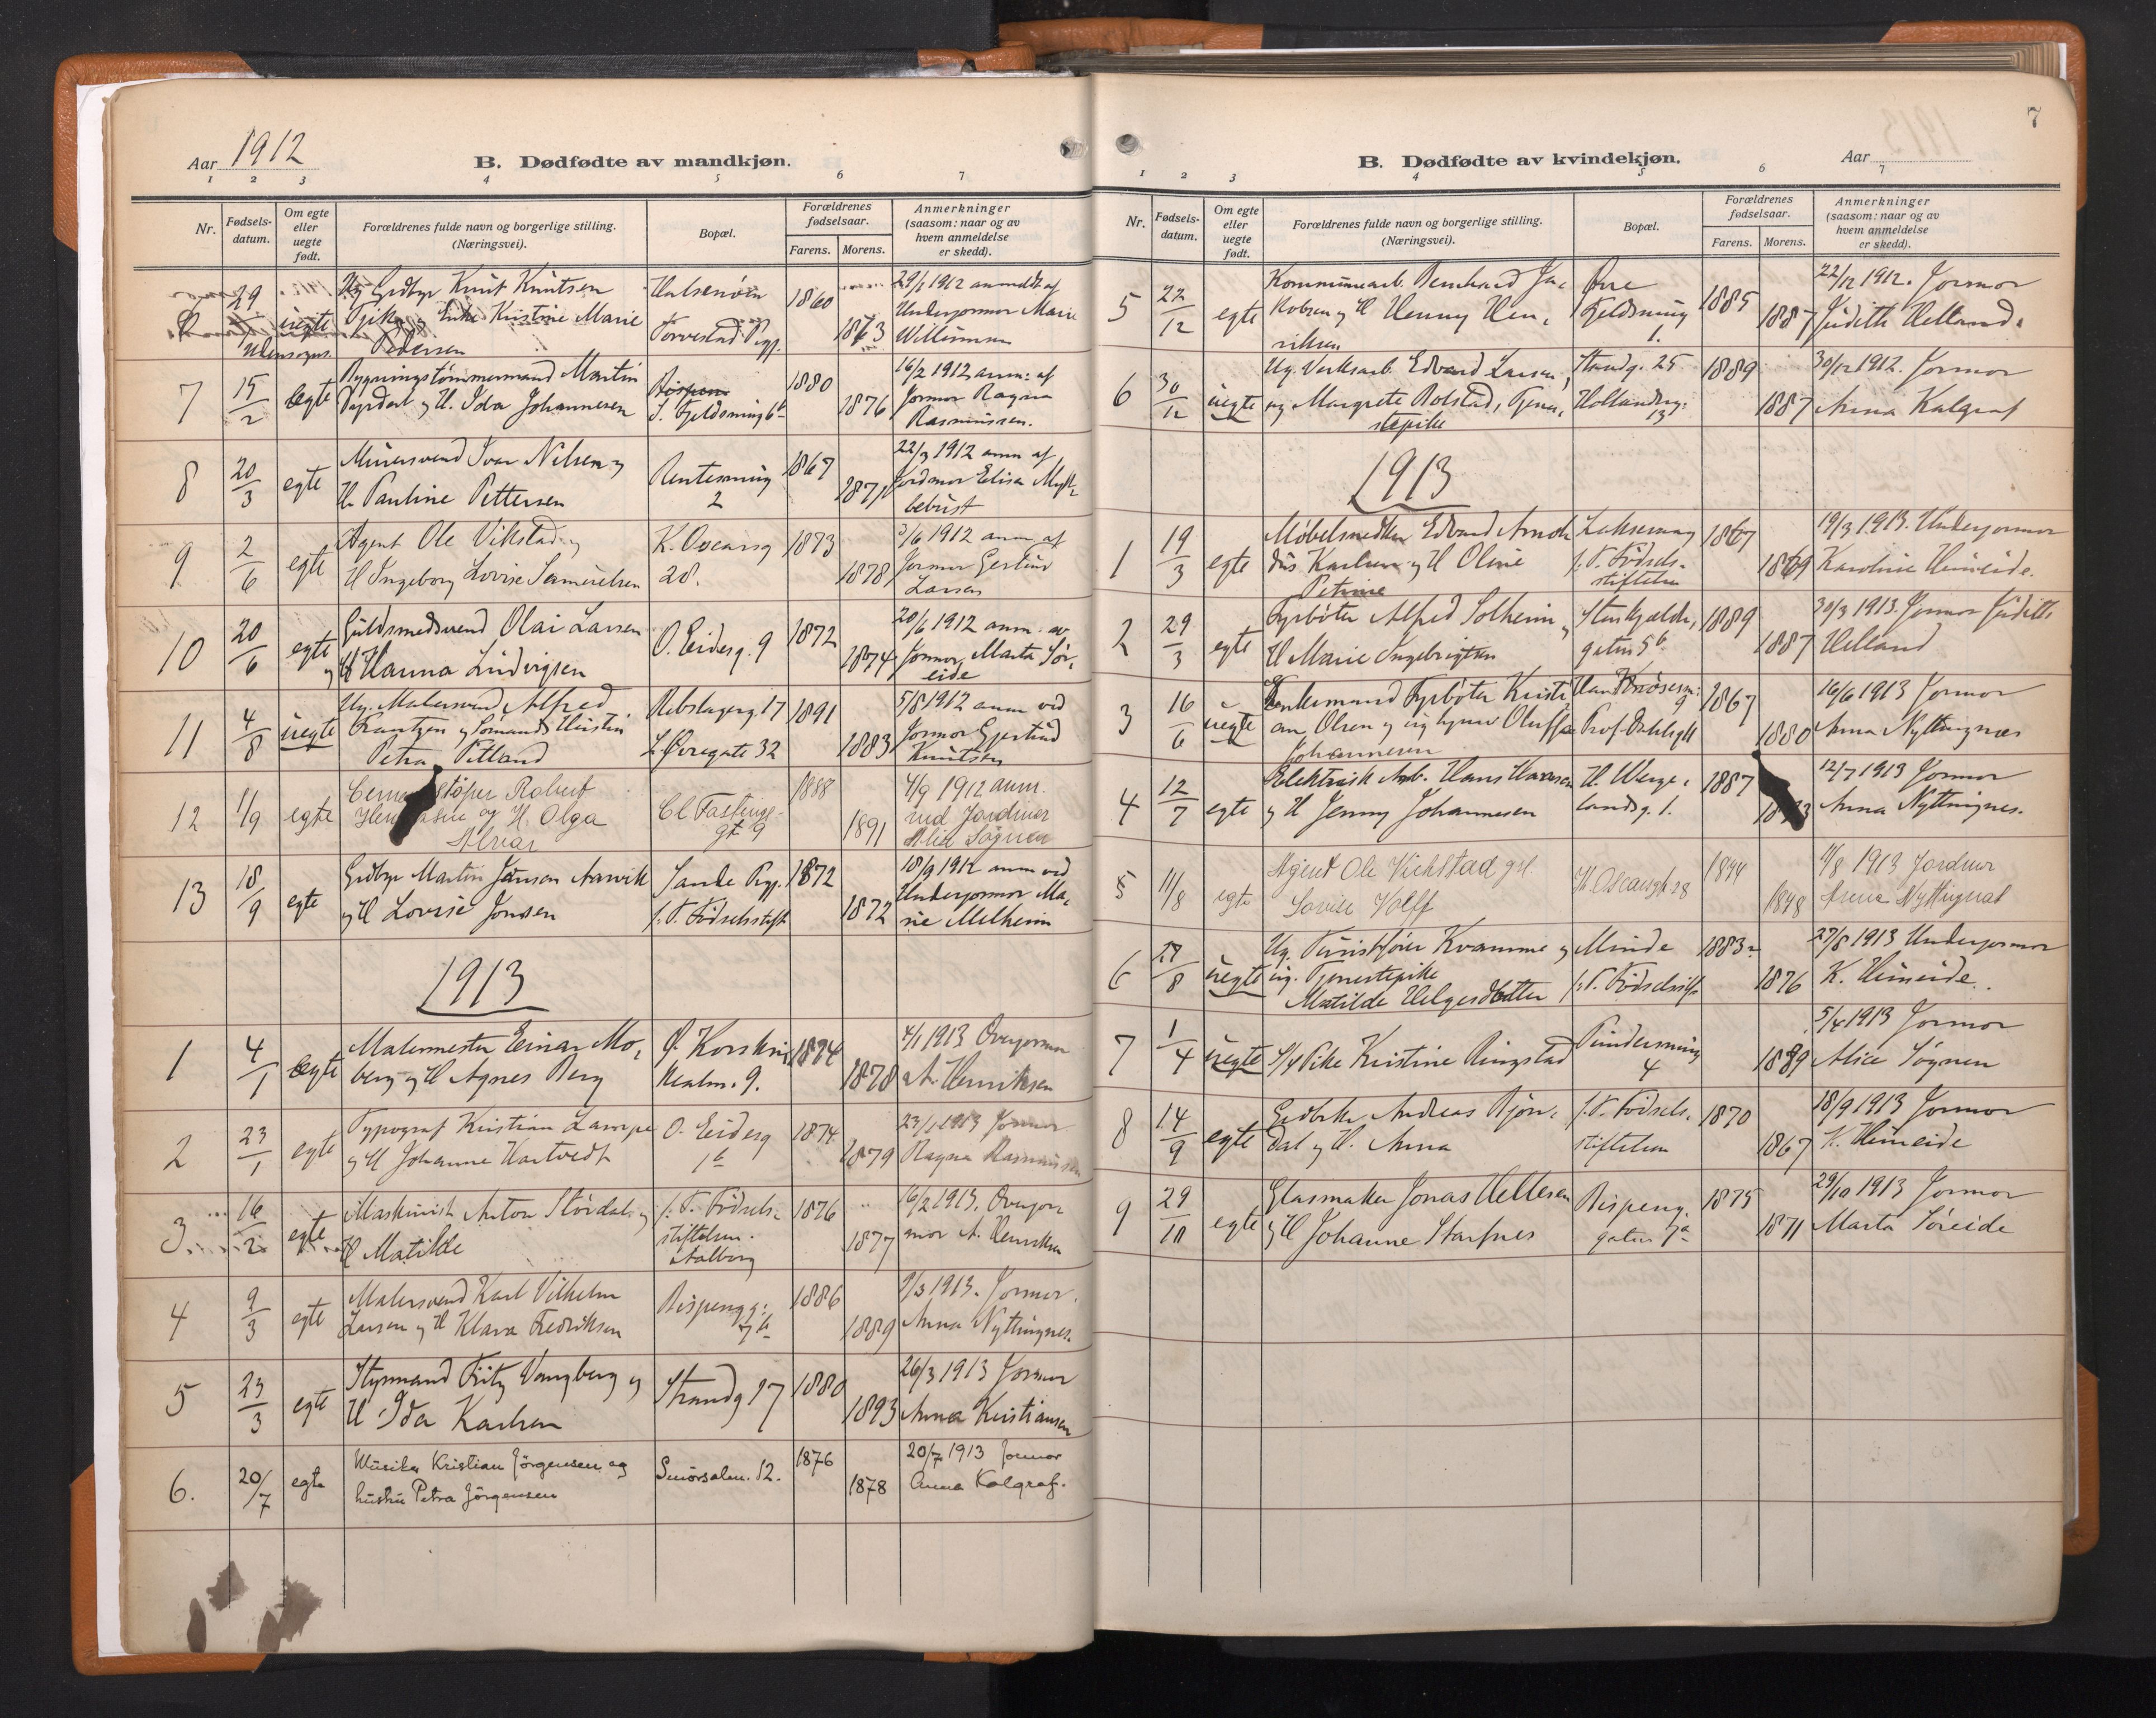 Aar 1912
B. Dødfødte av mandkjøn.
1 2 3 4 5 6 7
Nr.
Fødsels-
datum.
Om egte
eller
uegte
født.
Forældrenes fulde navn og borgerlige stilling.
(Næringsvei).
Bopæl.
Forældrenes
fødselsaar.
Farens. Morens.
Anmerkninger
(saasom: naar og av
hvem anmeldelse
er skedd).
29 uegte
Ug Grdbr Knut Knutsen
Enke Kristine Marie
Pedersen
Torvestad Pgj.
1860 1863
29/1 1912 anmeldt af
Underjormor Marie
Willumsen
7 15/2 egte
Bygningstømmermand Martin
H. Ida Johannesen
1880 1876
16/2 1912 anm: af
Jormor Ragna
Rasmussen.
8 20/3 egte
Murersvend Ivar Nilsen og
H Pauline Pettersen
2
1867 1871
22/3 1912 anm af
Jordmor Elisa Mykle-
bebust
9 2/6 egte
Agent Ole Vikstad og
H Ingeborg Lovise Samuelsen
K. Oscarsg
28.
1873 1878
3/6 1912 anm. af
Jormor Gertine
Larsen
10 20/6 egte
Guldsmedsvend Olai Larsen
og H Hanna Ludvigsen
O. Eidesg. 9
1872 1874
20/6 1912 anm. av
Jormor Marta Sør-
eide
11 4/8 uegte
Ug. Malersvend Alfred
Frantzen og Sømands Hustru
Petra Pitland
Rebslagerg. 17
L. Øvregate 32
1891 1883
5/8 1912 anm ved
Jormor Gjertrud
Knutsen
12 1/9 egte
støper Robert
og H. Olga
Alvær
Cl Fastings
gt. 9
1888 1891
4/9 1912 anm.
ved Jordmor
Alice Søgnen
13 18/9 egte
Grdbr Martin Jonson Aarvik
og H Lovise Jonsen
Sande Pgj.
f. T. Fødselsstift
1872 1872
18/9 1912 anm ved
Underjormor Ma-
rie Melheim
1913
1 4/1 egte
Malermester Einar Mo-
berg og H Agnes Berg
Ø. Korskirke
alm. 9.
1874 1878
4/1 1913 Overjormor
A. Henriksen
2 23/1 egte
Typograf Kristian Lampe
og H Johanne Hartvedt
O. Eidesg
1b
1874 1879
23/1 1913 Jormor
Ragna Rasmussen
3 16/2 egte
Maskinist Anton Stördal og
H Matilde
f. T. Fødsels-
stiftelsen.
Aalborg
1876 1877
16/2 1913. Overjor
mor A. Henriksen
4 9/3 egte
Malersvend Karl Vilhelm
Larsen og H Klara Fredriksen
Bispengg:
7b
1886 1889
9/3 1913. Jormor.
Anna Nyttingnes.
5 23/3 egte
Styrmand Fritz Vangberg og
H Ida Karlsen
Strandg 17
1880 1893
26/3 1913 Jormor
Anna Kristiansen
6. 20/7 egte
Musiker Kristian Jörgensen og
hustru Petra Jörgensen
Smörsalm. 12.
1876 1878
20/7 1913 Jormor
Anna Kalgraf.
7
B. Dødfødte av kvindekjøn.
Aar
1 2 3 4 5 6 7
Nr.
Fødsels-
datum.
Om egte
eller
uegte
født.
Forældrenes fulde navn og borgerlige stilling.
(Næringsvei).
Bopæl.
Forældrenes
fødselsaar.
Farens. Morens.
Anmerkninger
(saasom: naar og av
hvem anmeldelse
er skedd).
5 22/12 egte
Kommunearb. Bernhard Ja-
kobsen og H Henny Hen-
riksen
Øvre
Fjeldsmug
1.
1885 1887
22/12 1912. Jormor
Judith Helland.
6 30/12 uegte
Ug. Verksarb. Edvard Larsen,
og Margrete Rolstad, Tjene-
stepike
Strandg. 25
Hollenderg:
13
1889 1887
30/12 1912. Jormor
Anna Kalgraf
1913
1 19/3 egte
Møbelsnedker Edvard Arnol-
dus Karlsen og H Oline
Petrine
f. T. Födsels-
stiftelsen
1867 1869
19/3 1913. Underjormor
Karoline Heimeide.
2 29/3 egte
Fyrbøter Alfred Solheim og
H Marie Ingebrigtsen
Stenkjelder-
gaten 5b.
1889 1887
30/3 1913. Jormor Judith
Helland
3 16/6 uegte
Enkemand Fyrbøter Kristi-
an Olsen og ug Oluffa
Johannesen
9
1867 1880
16/6 1913 Jormor
Anna Nyttingnes
4 12/7 egte
Elektrisk Arb. Hans Hansen
og H Jenny Johannesen
H. Werge-
landsg. 1.
1887
12/7 1913 Jormor
Anna Nyttingnes.
5 11/8 egte
Agent Ole Vickstad og H.
Lovise Wolff
K. Oscarsgt. 28
1844 1848
11/8 1913 Jordmor
Anna Nyttignæs
6 27/8 uegte
Ug. Turistfører Kvamme og
ug. Tjenestepike
Matilde Helgesdatter
Minde
f. T. Fødselsstift
1883 1876
27/8 1913 Underjormor
K. Heimeide.
7 1/4 uegte
Pike Kristine Ringstad
4
1889
5/4 1913 Jormor
Alice Søgnen
8 14/9 egte
Grdbrk Andreas Bjørn-
dal og H. Anna
f. T. Födsels-
stiftelsen
1870 1867
18/9 1913 Jormor
K. Heimeide
9 29/10 egte
Glasmaker Jonas Hellesen
og H Johanne Starfnes
Bispeng-
gaten 7a
1875 1871
29/10 1913 Jormor
Marta Søreide